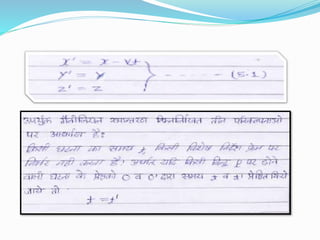 x' = x - vt
y' = y - - - - - - (5.1)
z' = z
उपर्युक्त गैलीलियन रूपान्तरण निम्नलिखित तीन परिकल्पनाओं
पर आधारित हैः
किसी घटना का समय t, किसी विशेष निर्देश फ्रेम पर
निर्भर नहीं करता है। अर्थात यदि किसी बिन्दु P पर होने
वाली घटना के प्रेक्षकों O व O' द्वारा समय t व t' प्रेक्षित किये
जायें तो
t = t'